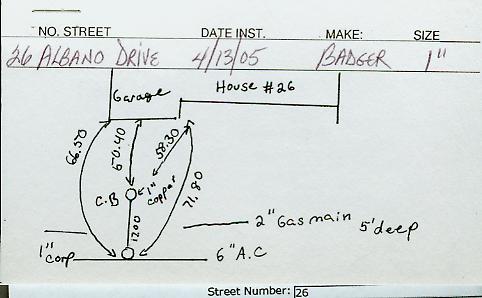 NO. STREET DATE INST. MAKE: SIZE
26 ALBANO DRIVE 4/13/05 BADGER 1"
Garage House #26
66.50
60.40
58.30
71.80
C.B
1" copper
1200
2" Gas main 5' deep
1" corp
6" A.C
Street Number: 26